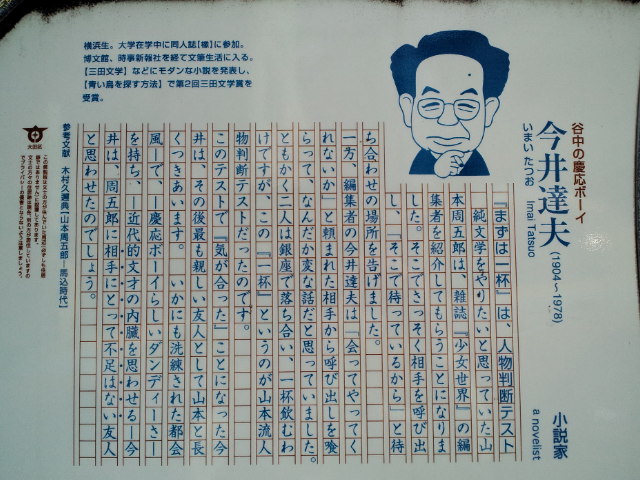 谷中の慶応ボーイ
いまい たつお Imai Tatsuo
今井達夫(1904～1978)
小説家
a novelist
横浜生。大学在学中に同人誌【橡】に参加。
博文館、時事新報社を経て文筆生活に入る。
【三田文学】などにモダンな小説を発表し、
【青い鳥を探す方法】で第2回三田文学賞を
受賞。
『まずは一杯』は、人物判断テスト
純文学をやりたいと思っていた山
本周五郎は、雑誌『少女世界』の編
集者を紹介してもらうことになりま
した。そこでさっそく相手を呼び出
し、「そこで待っているから」と待
ち合わせの場所を告げました。
一方、編集者の今井達夫は「会ってやってく
れないか」と頼まれた相手から呼び出しを喰
らって、なんだか変な話だと思っていました。
ともかく二人は銀座で落ち合い、一杯飲むわ
けですが、この『一杯』というのが山本流人
物判断テストだったのです。
このテストで『気が合った』ことになった今
井は、その後最も親しい友人として山本と長
くつきあいます。いかにも洗練された都会
風ーで、ー慶応ボーイらしいダンディーさー
を持ち、ー近代的文才の内臓を思わせるー今
井は、周五郎に相手にとって不足はない友人
と思わせたのでしょう。
参考文献 木村久邇典【山本周五郎ー馬込時代】
大田区